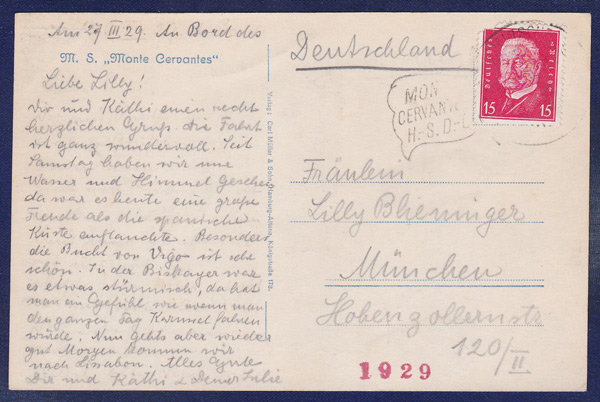 Am 27 III 29. An Bord des
M. S. „Monte Cervantes"
Liebe Lilly!
Dir und Käthi einen recht
herzlichen Gruß. Die Fahrt
ist ganz wundervoll. Seit
Samstag haben wir nur
Wasser und Himmel gesehen
da war es heute eine große
Freude als die spanische
Küste auftauchte. Besonders
die Bucht von Vigo ist sehr
schön. In der Biskayer war
es etwas stürmisch, da hat
man ein Gefühl wie wenn man
den ganzen Tag Karussel fahren
würde. Nun gehts aber wieder
gut Morgen kommen wir
nach Lissabon. Alles Gute
Dir und Käthi v. Deiner Julie
Verlag: Carl Müller & Sohn, Hamburg-Altona, Königstraße 175.
Deutschland
MON
CERVANT
H.-S. D.-
Deutsches Reich
15 15
Fräulein
Lilly Blieninger
München
Hohenzollernstr
120/II
1929